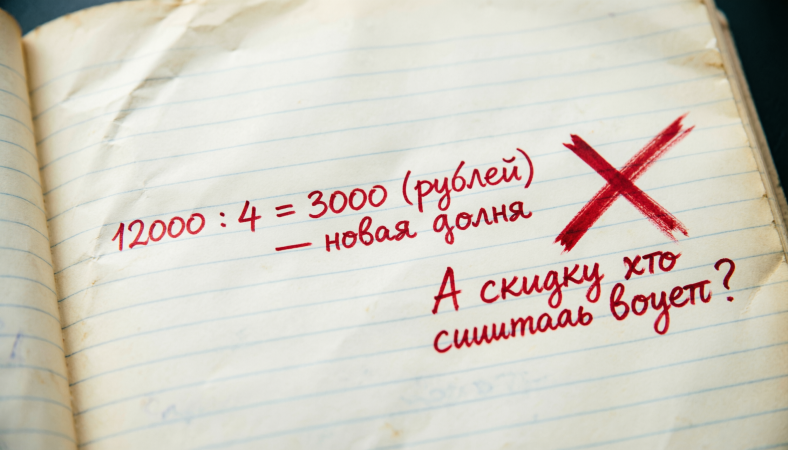 12000 : 4 = 3000 (рублей)
— новая долня
А скидку хто
сииштааь воцеп?